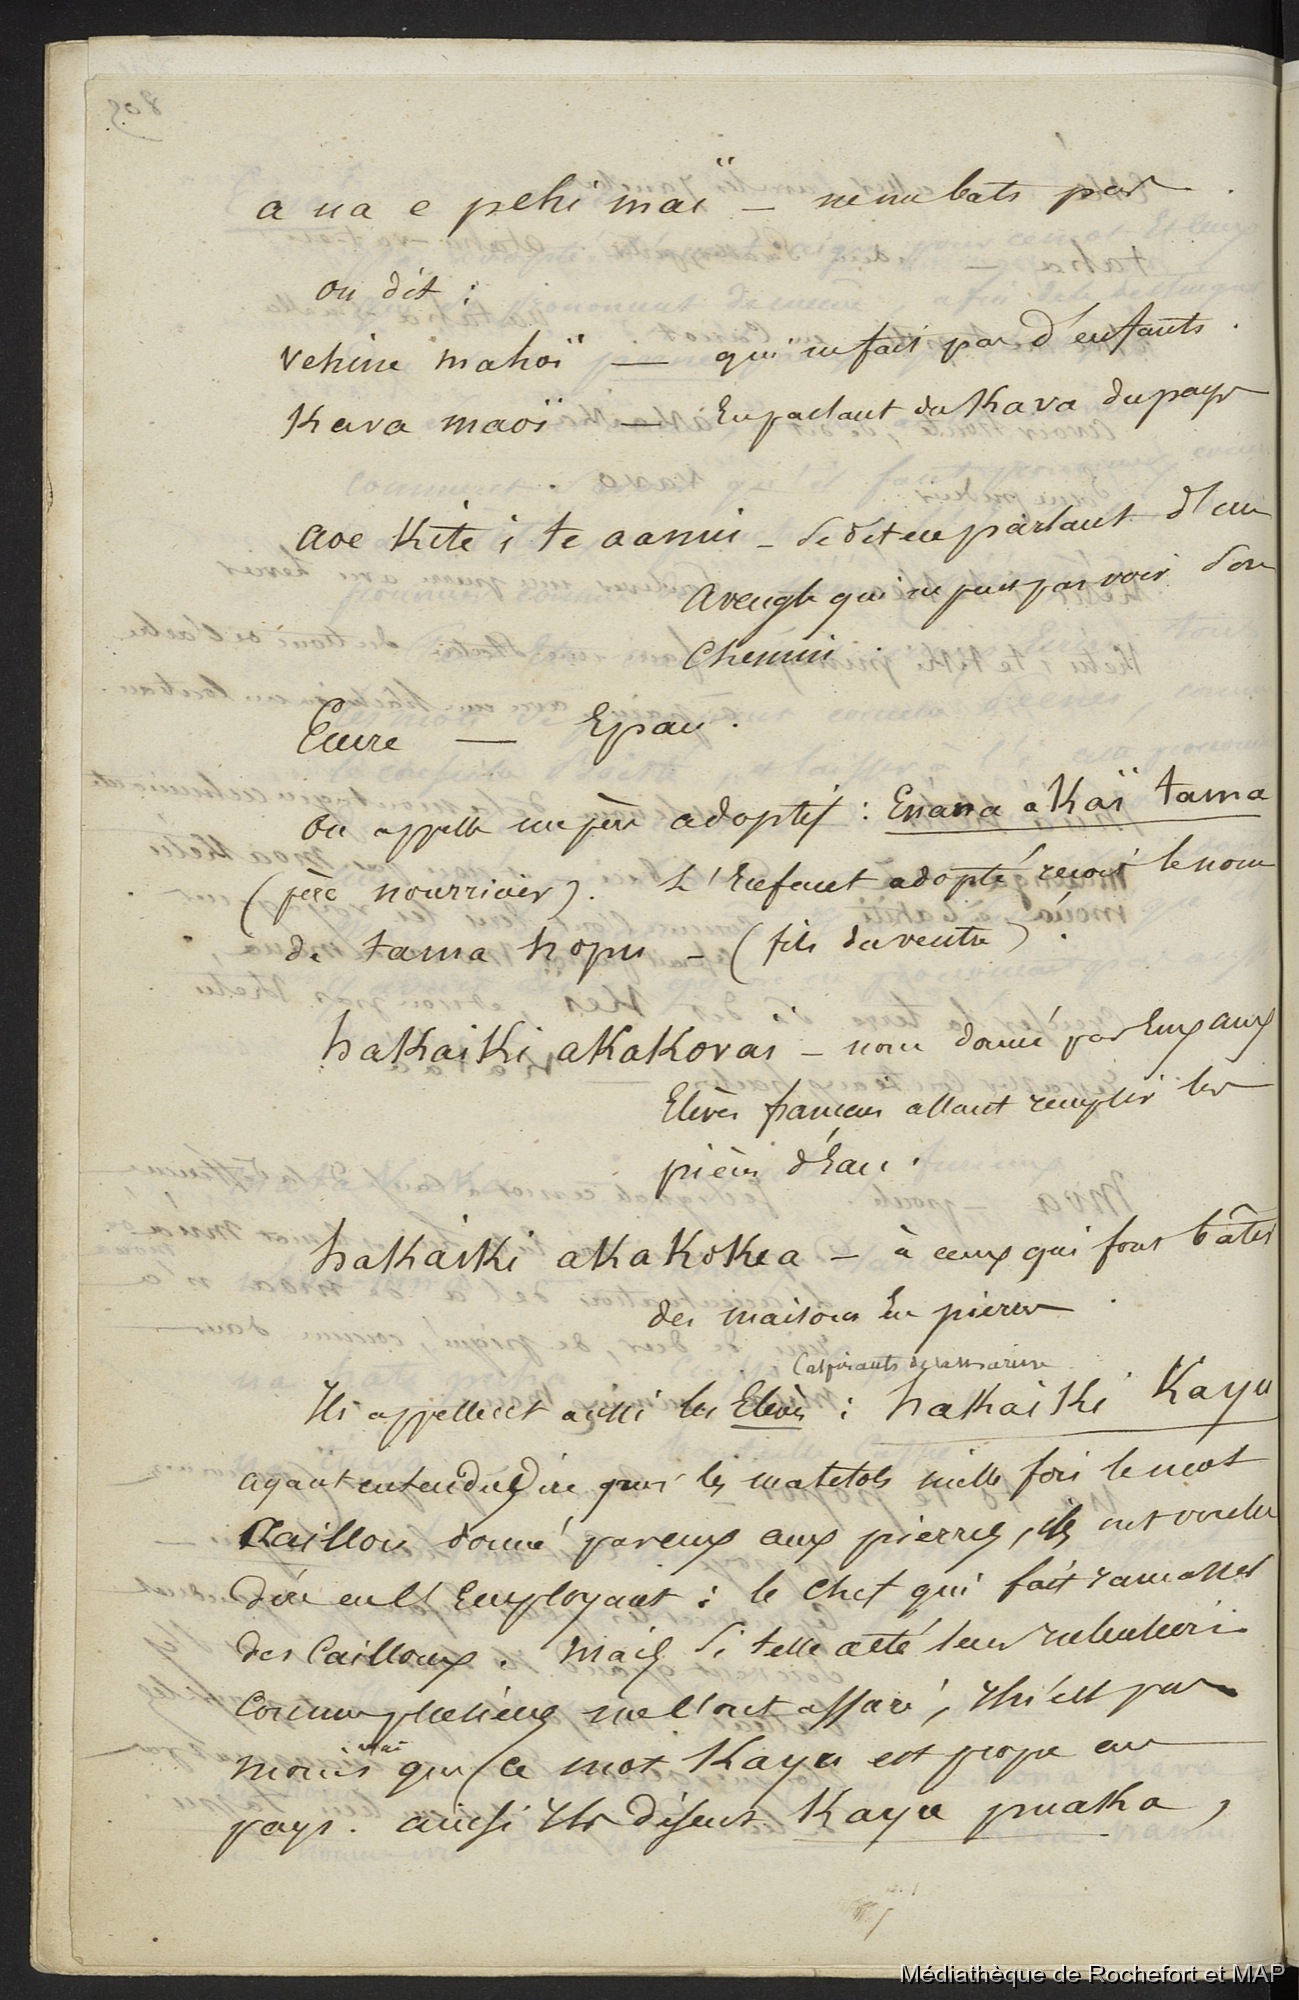 a ua e pehi maï – ne me bats pas.
on dit :
Vehine mahoï — qui ne fait pas d'enfants.
Kava maoï — En parlant du Kava du pays
aoe Kite i te aanui – Se dit en parlant d'un
aveugle qui ne peut pas voir son
Chemin.
— Epau.
On appelle un père adoptif : Enana a Kaï tama
(père nourricier). L'Enfant adopté reçoit le nom
de tama hopu – (fils du ventre).
haKaiKi aKaKovai – nom donné par Eux aux
Elèves français allant remplir les
pièces d'Eau.
haKaiKi aKaKoKea – à ceux qui font bâtir
des maisons En pierres.
(aspirants de la marine
Ils appellent aussi les Elèves : haKaiKi Kayu
ayant entendu dire par les matelots mille fois le mot
Caillou donné par eux aux pierres, ils ont voulu
dire en l'Employant : le chef qui fait ramasser
des Cailloux. Mais si telle a été leur
comme plusieurs me l'ont assuré, Il n'est pas
moins vrai que ce mot Kayu est propre au
pays. ainsi Ils disent Kayu puaKa,
Médiathèque de Rochefort et MAP